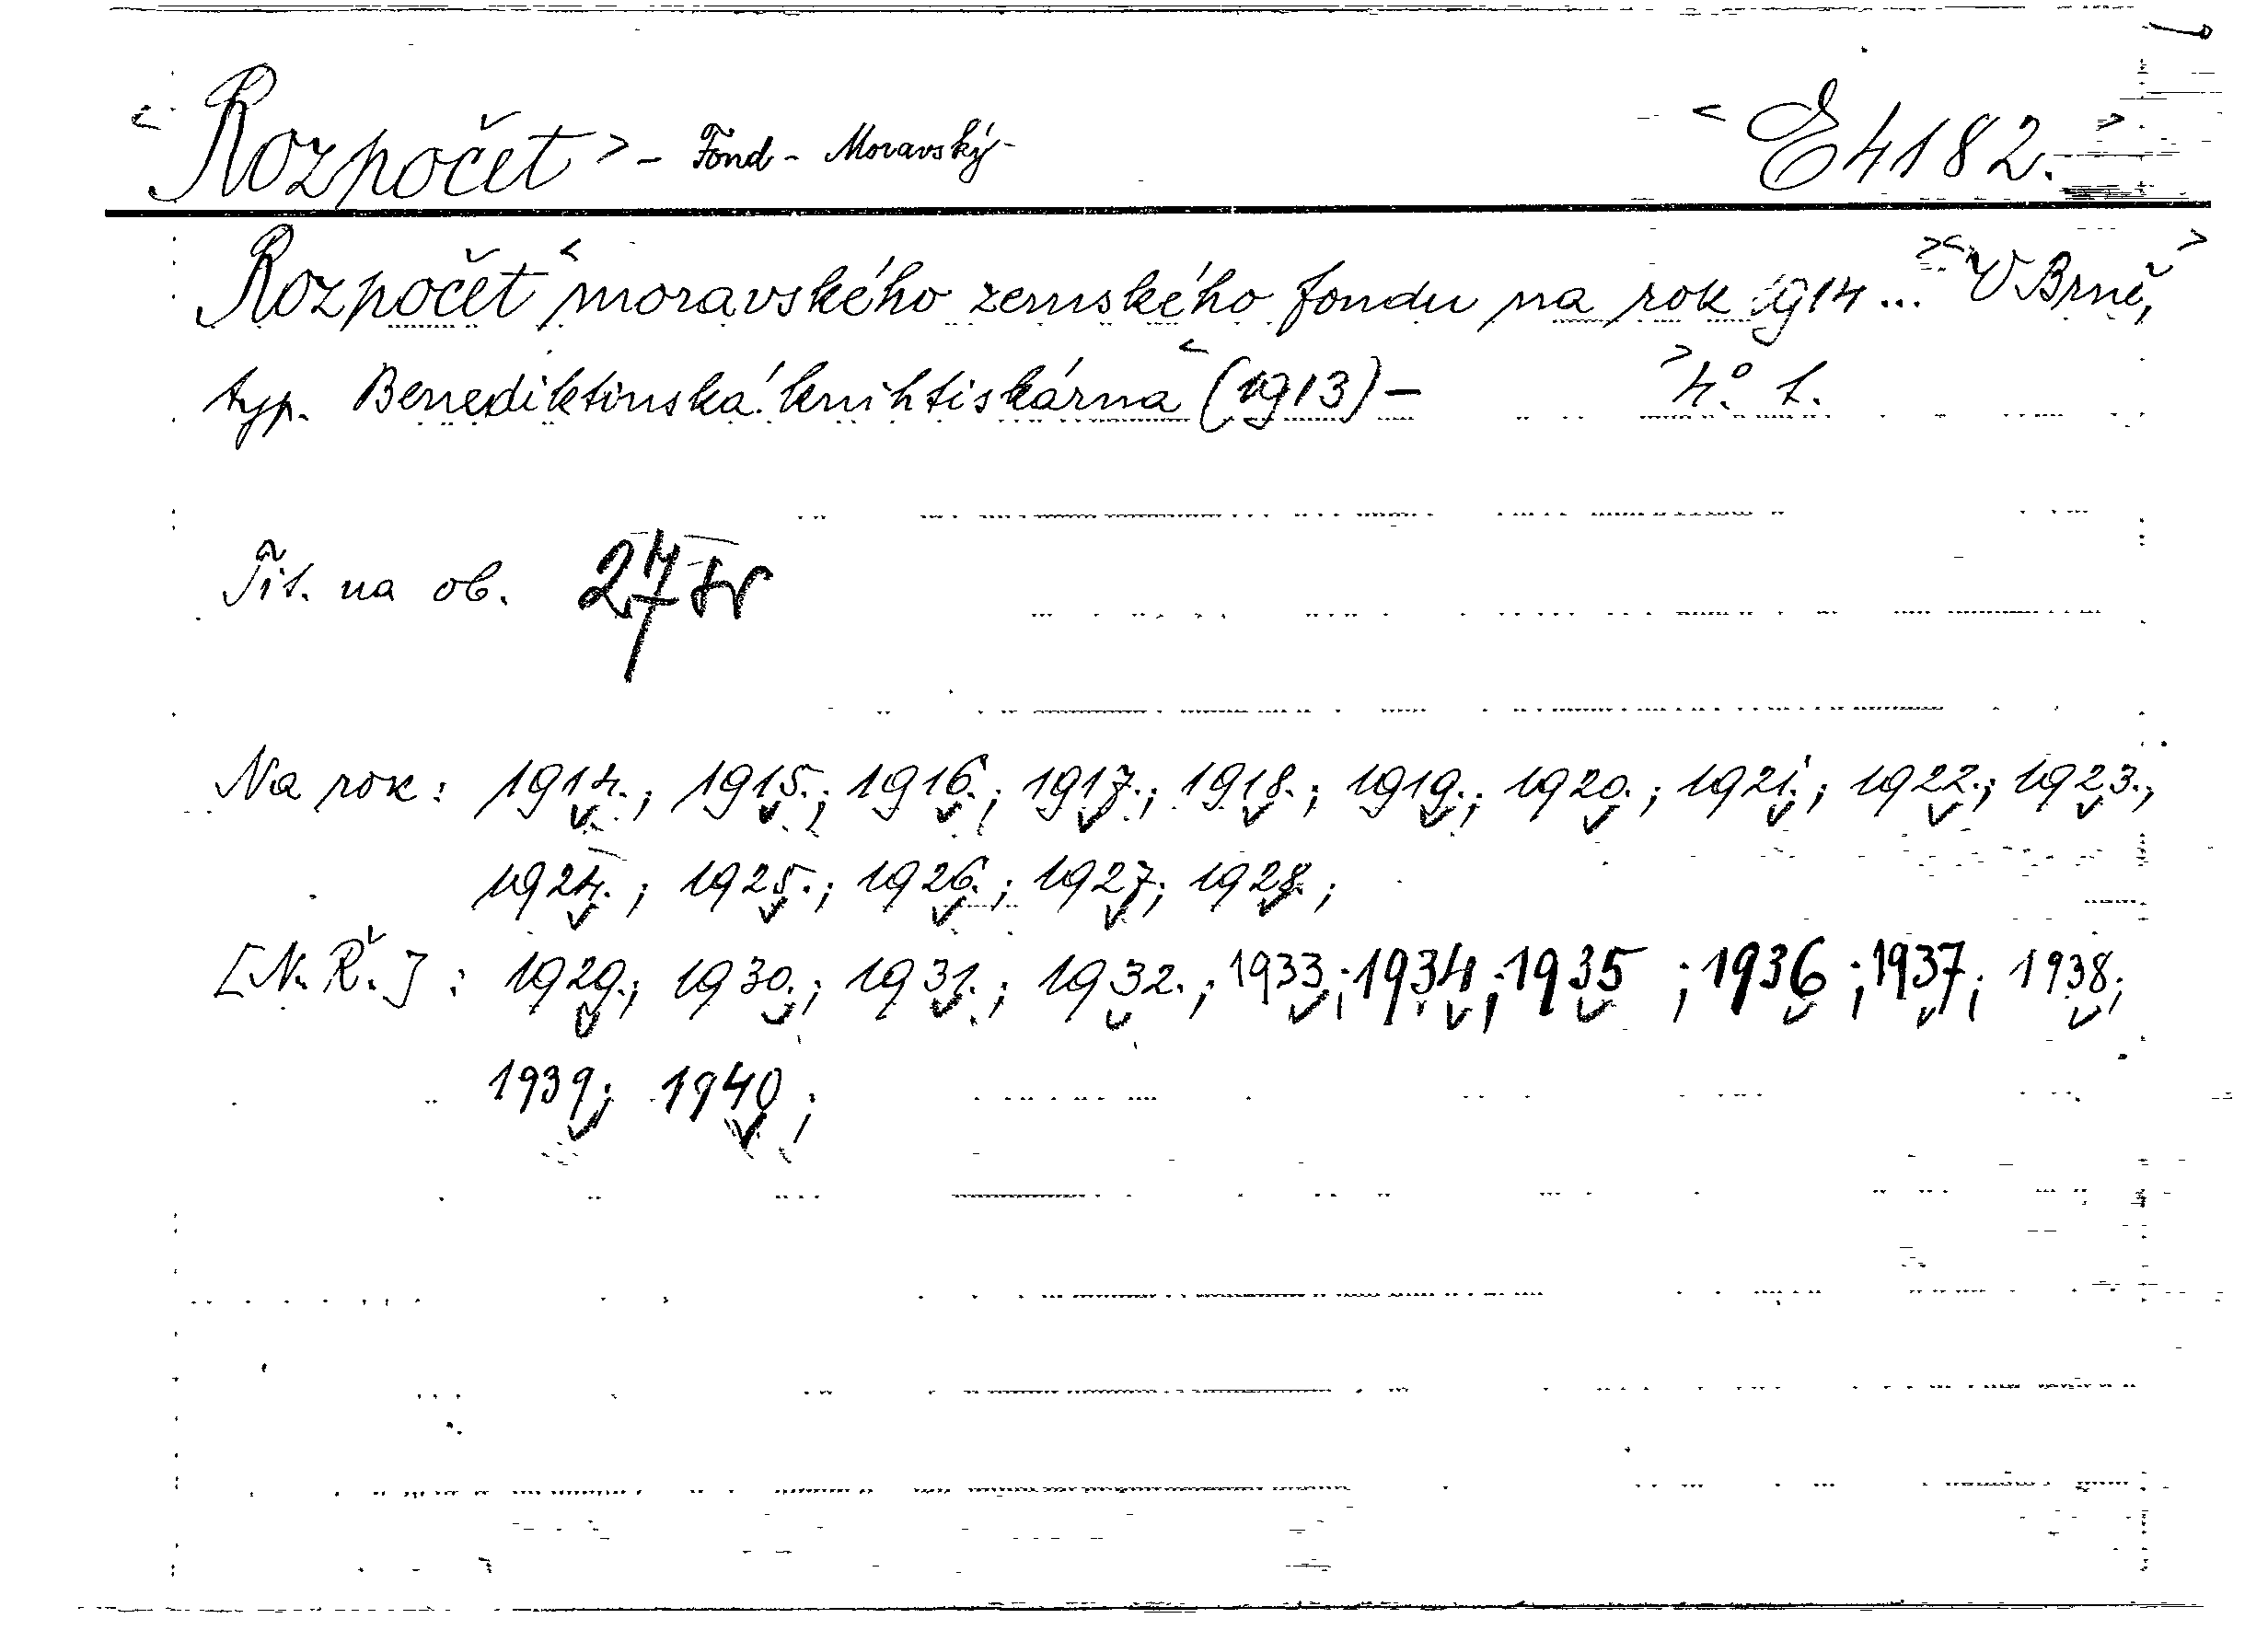 <Rozpočet> - Fond - Moravský - <E 4182.>
Rozpočet <moravského zemského fondu na rok 1914...> <V Brně,>
typ. Benediktinská knihtiskárna <(1913) - > 4°.
Tit. na ob.
Na rok: 1914.; 1915.; 1916.; 1917.; 1918.; 1919.; 1920.; 1921.; 1922.; 1923.,
1924.; 1925.; 1926.; 1927; 1928.;
[N. Ř.]: 1929.; 1930.; 1931.; 1932.; 1933; 1934; 1935; 1936; 1937; 1938;
1939; 1940;